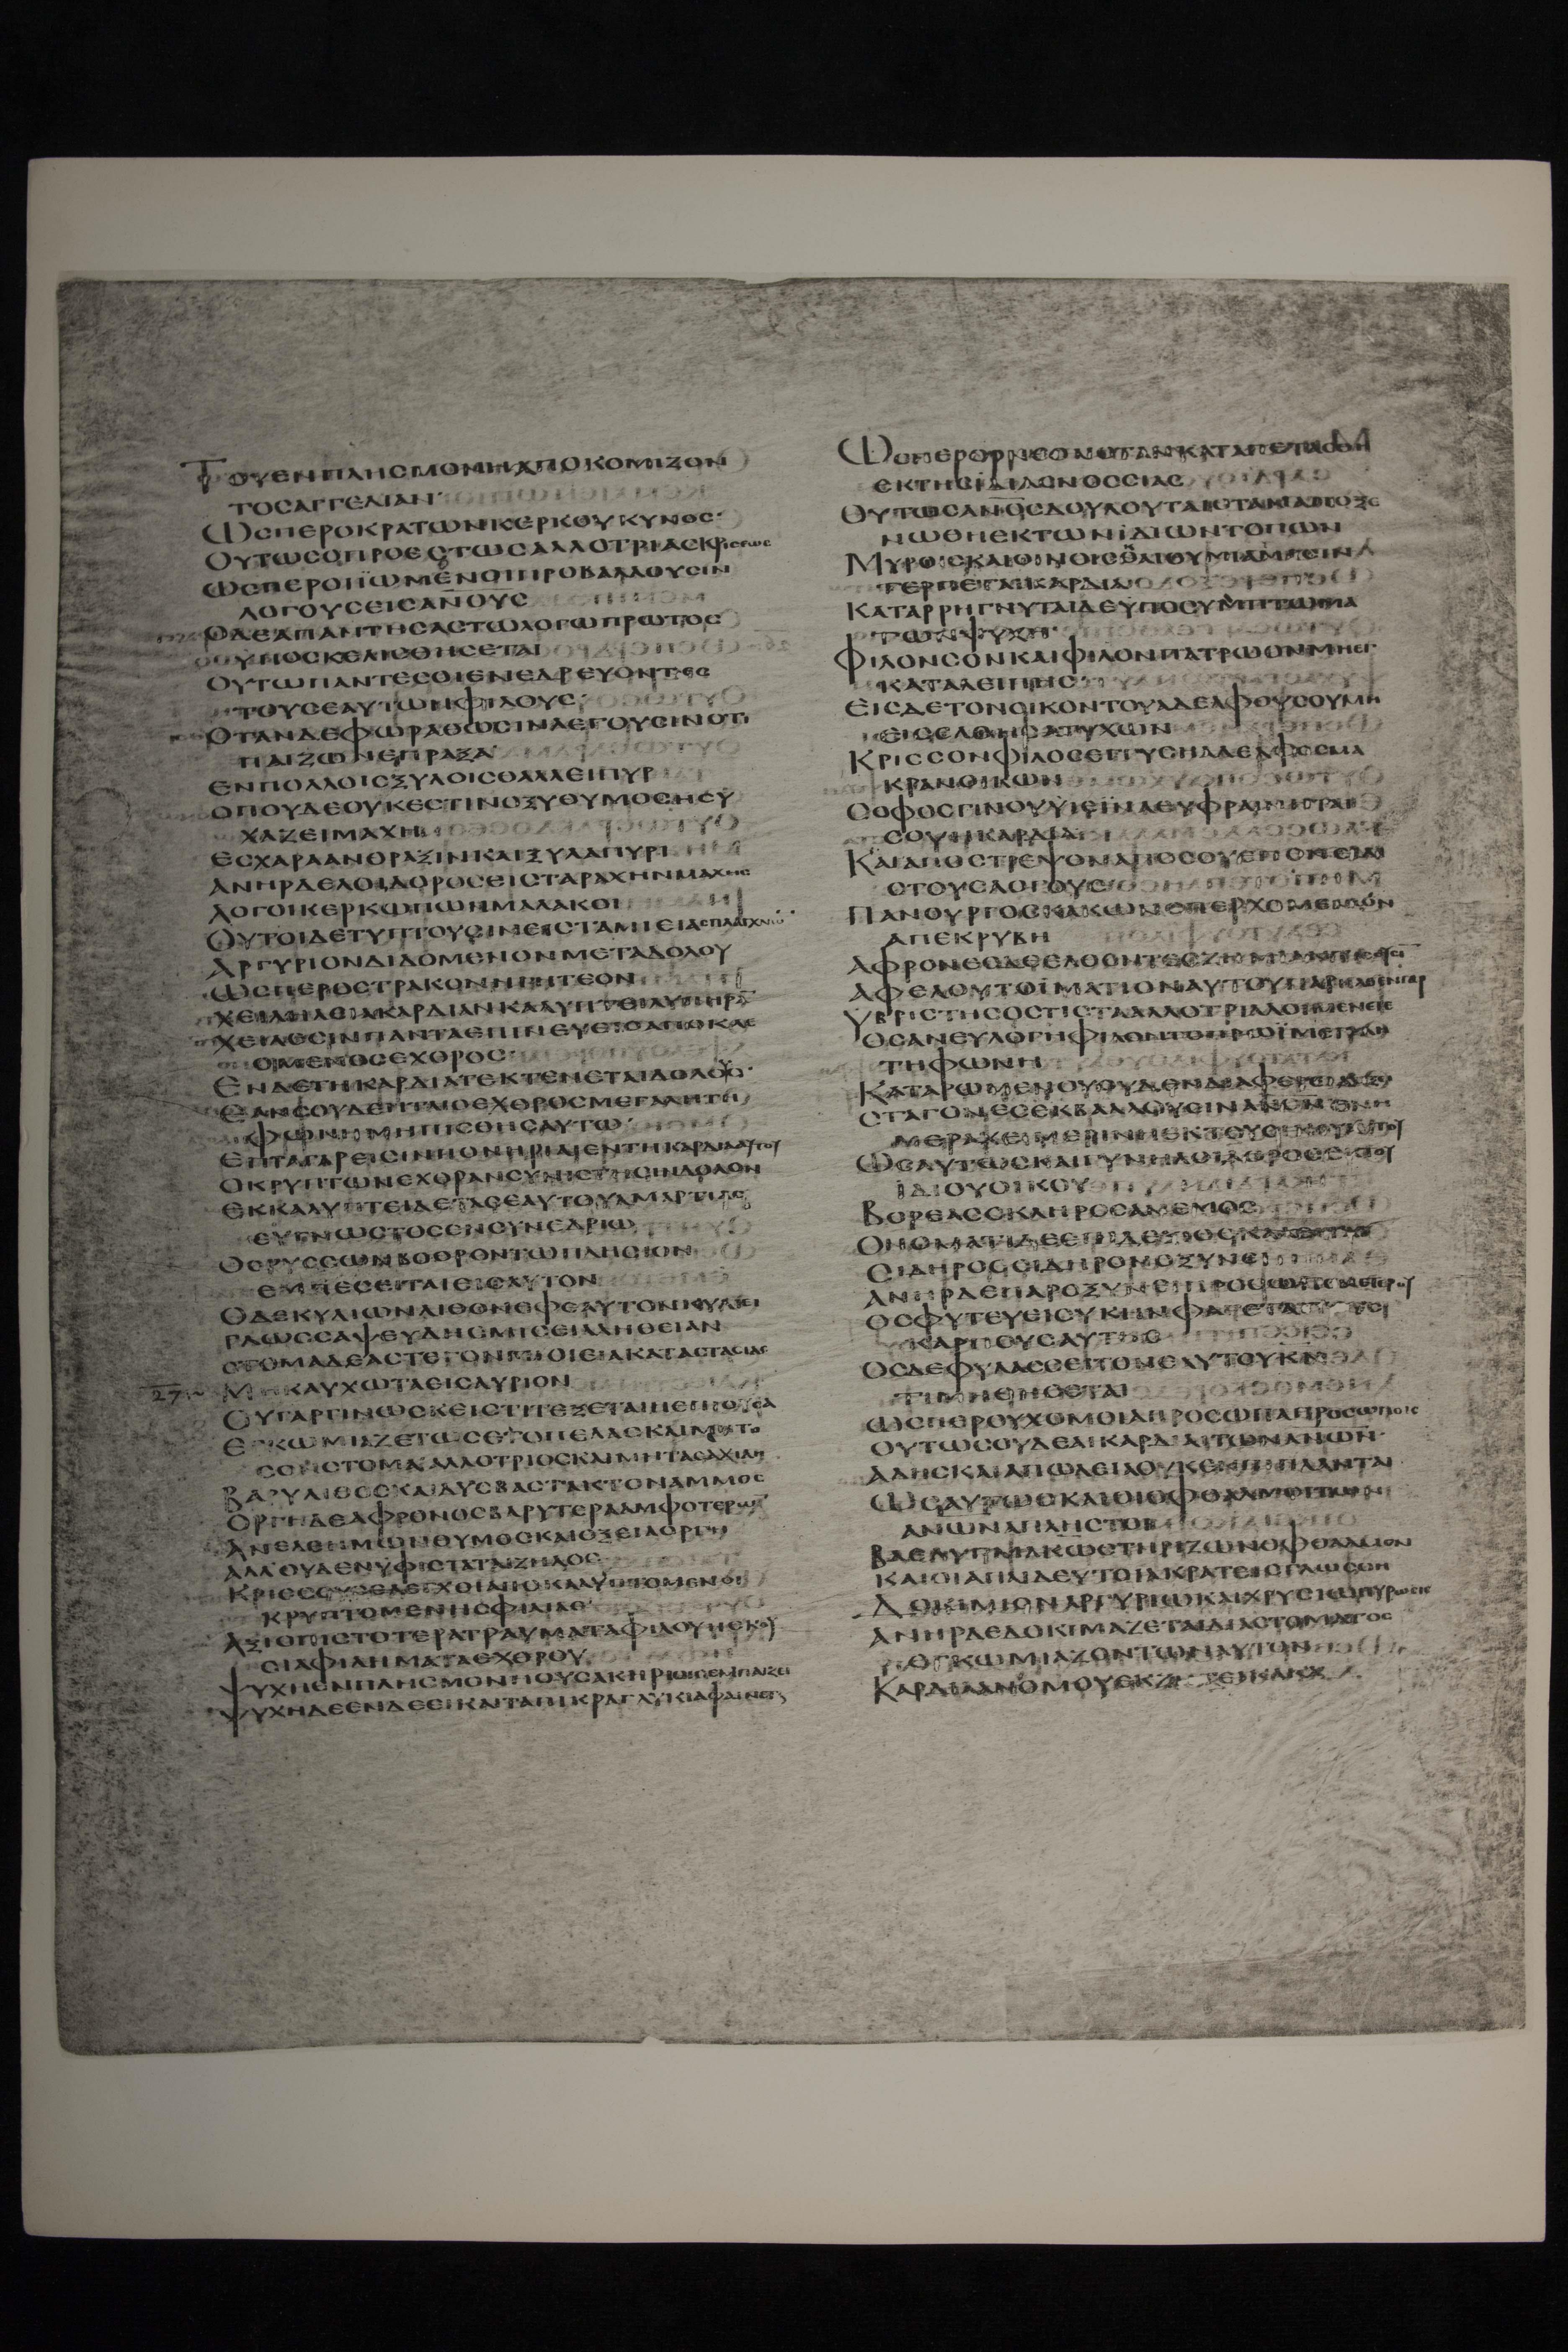 ΤΟΥΕΝΠΛΗϹΜΟΝΗΑΠΟΚΟΜΙΖΟΝ
ΤΟϹΑΓΓΕΛΙΑΝ
ΩϹΠΕΡΟΚΡΑΤΩΝΚΕΡΚΟΥΚΥΝΟϹ
ΟΥΤΩϹΟΠΡΟΕϹΤΩϹΑΛΛΟΤΡΙΑϹΚΡΙϹΕΩϹ
ΩϹΠΕΡΟΙΪΩΜΕΝΟΙΠΡΟΒΑΛΛΟΥϹΙΝ
ΛΟΓΟΥϹΕΙϹΑΝ̅ΟΥϹ
ΟΔΕΑΠΑΝΤΗϹΑϹΤΩΛΟΓΩΠΡΩΤΟϹ
ΥΠΟϹΚΕΛΙϹΘΗϹΕΤΑΙ
ΟΥΤΩΠΑΝΤΕϹΟΙΕΝΕΔΡΕΥΟΝΤΕϹ
ΤΟΥϹΕΑΥΤΩΝΦΙΛΟΥϹ
ΟΤΑΝΔΕΦΩΡΑΘΩϹΙΝΛΕΓΟΥϹΙΝΟΤΙ
ΠΑΙΖΩΝΕΠΡΑΞΑ
ΕΝΠΟΛΛΟΙϹΞΥΛΟΙϹΘΑΛΛΕΙΠΥΡ
ΟΠΟΥΔΕΟΥΚΕϹΤΙΝΟΞΥΘΥΜΟϹΗϹΥ
ΧΑΖΕΙΜΑΧΗ
ΕϹΧΑΡΑΑΝΘΡΑΞΙΝΚΑΙΞΥΛΑΠΥΡΙ
ΑΝΗΡΔΕΛΟΙΔΟΡΟϹΕΙϹΤΑΡΑΧΗΝΜΑΧΗϹ
ΛΟΓΟΙΚΕΡΚΩΠΩΝΜΑΛΑΚΟΙ
ΟΥΤΟΙΔΕΤΥΠΤΟΥϹΙΝΕΙϹΤΑΜΙΕΙΑϹΠΛΑΓΧΝΩ̅
ΑΡΓΥΡΙΟΝΔΙΔΟΜΕΝΟΝΜΕΤΑΔΟΛΟΥ
ΩϹΠΕΡΟϹΤΡΑΚΟΝΗΓΗΤΕΟΝ
ΧΕΙΛΗΛΕΙΑΚΑΡΔΙΑΝΚΑΛΥΠΤΕΙΛΥΠΗΡΑ̅
ΧΕΙΛΕϹΙΝΠΑΝΤΑΕΠΙΝΕΥΕΙ
ΟΜΕΝΟϹΕΧΘΡΟϹ
ΕΝΔΕΤΗΚΑΡΔΙΑΤΕΚΤΕΝΕΤΑΙΔΟΛΟΥϹ
ΕΑΝϹΟΥΔΕΗΤΑΙΟΕΧΘΡΟϹΜΕΓΑΛΗΤΗ
ΦΩΝΗΜΗΠΙϹΘΗϹΑΥΤΩ
ΕΠΤΑΓΑΡΕΙϹΙΝΠΟΝΗΡΙΑΙΕΝΤΗΚΑΡΔΙΑΑΥΤΟΥ
ΟΚΡΥΠΤΩΝΕΧΘΡΑΝϹΥΝΙϹΤΗϹΙΝΔΟΛΟΝ
ΕΚΚΑΛΥΠΤΕΙΔΕΤΑϹΕΑΥΤΟΥΑΜΑΡΤΙΑϹ
ΕΥΓΝΩϹΤΟϹΕΝϹΥΝΕΔΡΙΩ
ΟΟΡΥϹϹΩΝΒΟΘΡΟΝΤΩΠΛΗϹΙΟΝ
ΕΜΠΕϹΕΙΤΑΙΕΙϹΑΥΤΟΝ
ΟΔΕΚΥΛΙΩΝΛΙΘΟΝΕΦΕΑΥΤΟΝΚΥΛΙΕΙ
ΓΛΩϹϹΑΨΕΥΔΗϹΜΙϹΕΙΑΛΗΘΕΙΑΝ
ϹΤΟΜΑΔΕΑϹΤΕΓΟΝΠΟΙΕΙΑΚΑΤΑϹΤΑϹΙΑϹ
27 ΜΗΚΑΥΧΩΤΑΕΙϹΑΥΡΙΟΝ
ΟΥΓΑΡΓΙΝΩϹΚΕΙϹΤΙΤΕΞΕΤΑΙΗΕΠΙΟΥϹΑ
ΕΓΚΩΜΙΑΖΕΤΩϹΕΟΠΕΛΑϹΚΑΙΜΗΤΟ
ϹΟΝϹΤΟΜΑΑΛΛΟΤΡΙΟϹΚΑΙΜΗΤΑϹΑΧΙΛΗ
ΒΑΡΥΛΙΘΟϹΚΑΙΔΥϹΒΑϹΤΑΚΤΟΝΑΜΜΟϹ
ΟΡΓΗΔΕΑΦΡΟΝΟϹΒΑΡΥΤΕΡΑΑΜΦΟΤΕΡΩ̅
ΑΝΕΛΕΗΜΩΝΘΥΜΟϹΚΑΙΟΞΕΙΑΟΡΓΗ
ΑΛΛΟΥΔΕΝΥΦΙϹΤΑΤΑΙΖΗΛΟϹ
ΚΡΙϹϹΟΥϹΕΛΕΓΧΟΙΑΠΟΚΑΛΥΠΤΟΜΕΝΟΙ
ΚΡΥΠΤΟΜΕΝΗϹΦΙΛΙΑϹ
ΑΞΙΟΠΙϹΤΟΤΕΡΑΤΡΑΥΜΑΤΑΦΙΛΟΥΗΕΚΟΥ
ϹΙΑΦΙΛΗΜΑΤΑΕΧΘΡΟΥ
ΨΥΧΗΕΝΠΛΗϹΜΟΝΗΟΥϹΑΚΗΡΙΟΙϹΕΜΠΑΙΖΕΙ
ΨΥΧΗΔΕΕΝΔΕΕΙΚΑΙΤΑΠΙΚΡΑΓΛΥΚΙΑΦΑΙΝΕΤ
ΩϹΠΕΡΟΡΝΕΟΝΟΤΑΝΚΑΤΑΠΕΤΑϹΘΗ
ΕΚΤΗϹΙΔΙΑϹΝΟϹϹΙΑϹ
ΟΥΤΩϹΑΝ̅ΟϹΔΟΥΛΟΥΤΑΙΟΤΑΝΑΠΟΞΕ
ΝΩΘΗΕΚΤΩΝΙΔΙΩΝΤΟΠΩΝ
ΜΥΡΟΙϹΚΑΙΟΙΝΟΙϹΚΑΙΘΥΜΙΑΜΑϹΙΝ
ΤΕΡΠΕΤΑΙΚΑΡΔΙΑ
ΚΑΤΑΡΡΗΓΝΥΤΑΙΔΕΥΠΟϹΥΜΠΤΩΜΑ
ΤΩΝΨΥΧΗ
ΦΙΛΟΝϹΟΝΚΑΙΦΙΛΟΝΠΑΤΡΩΟΝΜΗΕΓ
ΚΑΤΑΛΕΙΠΗϹ
ΕΙϹΔΕΤΟΝΟΙΚΟΝΤΟΥΑΔΕΛΦΟΥϹΟΥΜΗ
ΕΙϹΕΛΘΗϹΑΤΥΧΩΝ
ΚΡΙϹϹΟΝΦΙΛΟϹΕΓΓΥϹΗΑΔΕΛΦΟϹΜΑ
ΚΡΑΝΟΙΚΩΝ
ϹΟΦΟϹΓΙΝΟΥΥΙΕΪΝΑΕΥΦΡΑΙΝΗΤΑΙ
ϹΟΥΗΚΑΡΔΙΑ
ΚΑΙΑΠΟϹΤΡΕΨΟΝΑΠΟϹΟΥΕΠΟΝΕΙΔΙ
ϹΤΟΥϹΛΟΓΟΥϹ
ΠΑΝΟΥΡΓΟϹΚΑΚΩΝΕΠΕΡΧΟΜΕΝΩΝ
ΑΠΕΚΡΥΒΗ
ΑΦΡΟΝΕϹΔΕΕΠΕΛΘΟΝΤΕϹΖΗΜΙΑΝ
ΑΦΕΛΟΥΤΟΪΜΑΤΙΟΝΑΥΤΟΥΠΑΡΗΛΘΕΝΓΑΡ
ΥΒΡΙϹΤΗϹΟϹΤΙϹΤΑΑΛΛΟΤΡΙΑΛΟΙΜΕΝΕΤΕ
ΟϹΑΝΕΥΛΟΓΗΦΙΛΟΝΤΟΠΡΩΪΜΕΓΑΛΗ
ΤΗΦΩΝΗ
ΚΑΤΑΡΩΜΕΝΟΥΟΥΔΕΝΔΙΑΦΕΡΕΙ
ϹΤΑΓΟΝΕϹΕΚΒΑΛΛΟΥϹΙΝΑΝ̅ΟΝΕΝΗ
ΜΕΡΑΧΕΙΜΕΡΙΝΗΕΚΤΟΥΟΙΚΟΥΑΥΤΟΥ
ΩϹΑΥΤΩϹΚΑΙΓΥΝΗΛΟΙΔΟΡΟϹΕΚΤΟΥ
ΪΔΙΟΥΟΙΚΟΥ
ΒΟΡΕΑϹϹΚΛΗΡΟϹΑΝΕΜΟϹ
ΟΝΟΜΑΤΙΔΕΕΠΙΔΕΞΙΟϹΚΑΛΕΙΤΑΙ
ϹΙΔΗΡΟϹϹΙΔΗΡΟΝΟΞΥΝΕΙ
ΑΝΗΡΔΕΠΑΡΟΞΥΝΕΙΠΡΟϹΩΠΟΝΕΤΑΙΡΟΥ
ΟϹΦΥΤΕΥΕΙϹΥΚΗΝΦΑΓΕΤΑΙ
ΚΑΡΠΟΥϹΑΥΤΗϹ
ΟϹΔΕΦΥΛΑϹϹΕΙΤΟΝΕΑΥΤΟΥΚ̅Ν̅
ΤΙΜΗΘΗϹΕΤΑΙ
ΩϹΠΕΡΟΥΧΟΜΟΙΑΠΡΟϹΩΠΑΠΡΟϹΩΠΟΙϹ
ΟΥΤΩϹΟΥΔΕΑΙΚΑΡΔΙΑΙΤΩΝΑΝΩ̅Ν
ΑΔΗϹΚΑΙΑΠΩΛΕΙΑΟΥΚΕΜΠΙΠΛΑΝΤΑΙ
ΩϹΑΥΤΩϹΚΑΙΟΙΟΦΘΑΛΜΟΙΤΩΝ
ΑΝ̅ΩΝΑΠΛΗϹΤΟΙ
ΒΔΕΛΥΓΜΑΚΩϹΤΗΡΙΖΩΝΟΦΘΑΛΜΟΝ
ΚΑΙΟΙΑΠΑΙΔΕΥΤΟΙΑΚΡΑΤΕΙϹΓΛΩϹϹΗ
ΔΟΚΙΜΙΟΝΑΡΓΥΡΙΩΚΑΙΧΡΥϹΙΩΠΥΡΩϹΙϹ
ΑΝΗΡΔΕΔΟΚΙΜΑΖΕΤΑΙΔΙΑϹΤΟΜΑΤΟϹ
ΕΓΚΩΜΙΑΖΟΝΤΩΝΑΥΤΟΝ
ΚΑΡΔΙΑΑΝΟΜΟΥΕΚΖΗΤΕΙΚΑΚΑ